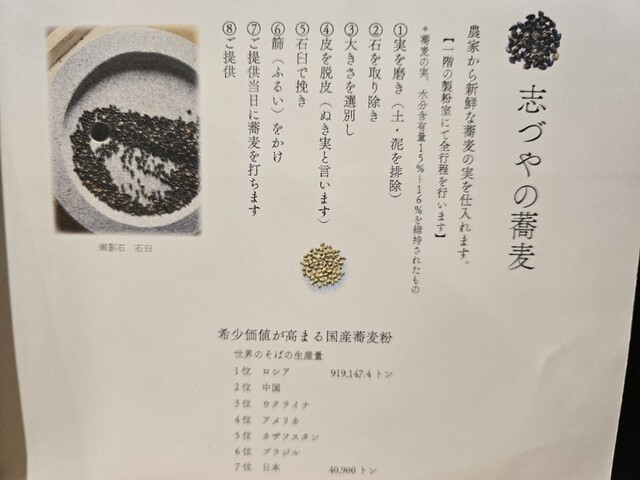 志づやの蕎麦
農家から新鮮な蕎麦の実を仕入れます。
【一階の製粉室にて全行程を行います】
*蕎麦の実、水分含有量15%~16%を維持されたもの
①実を磨き(土・泥を排除)
②石を取り除き
③大きさを選別し
④皮を脱皮(ぬき実と言います)
⑤石臼で挽き
⑥篩(ふるい)をかけ
⑦ご提供当日に蕎麦を打ちます
⑧ご提供
御影石 石臼
希少価値が高まる国産蕎麦粉
世界のそばの生産量
1位 ロシア 919,147.4トン
2位 中国
3位 ウクライナ
4位 アメリカ
5位 カザフスタン
6位 ブラジル
7位 日本 40,900トン